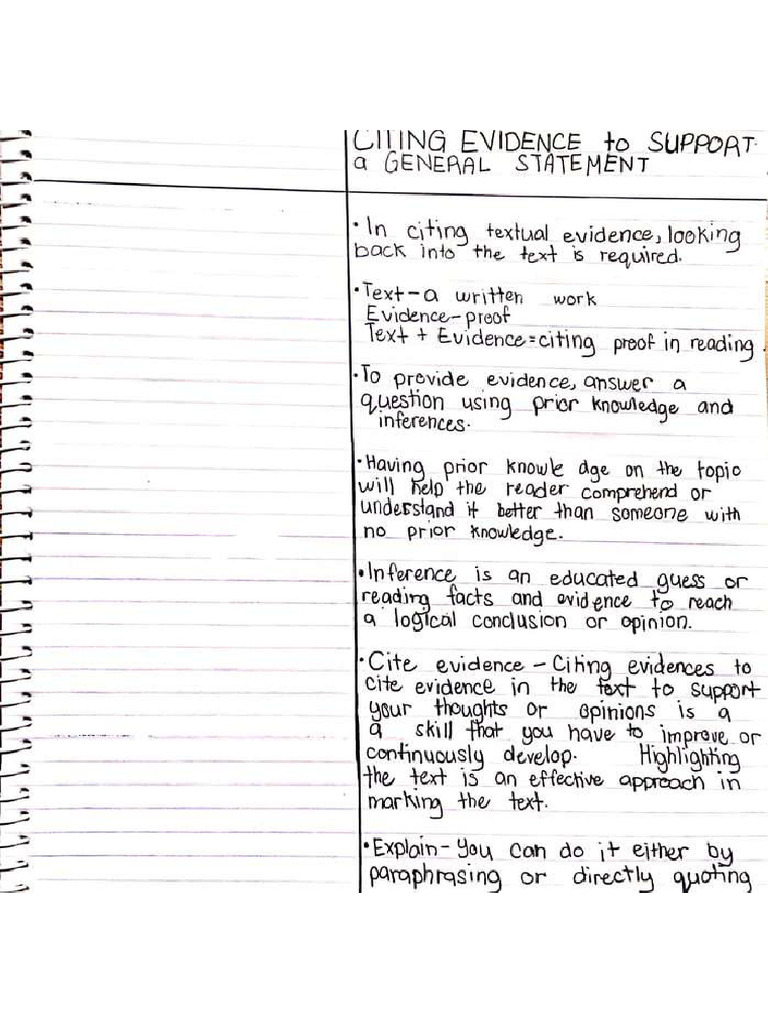 CITING EVIDENCE to SUPPORT
a GENERAL STATEMENT
• In citing textual evidence, looking
back into the text is required.
• Text - a written work
Evidence - proof
Text + Evidence = citing proof in reading
• To provide evidence, answer a
question using prior knowledge and
inferences.
• Having prior knowle dge on the topic
will help the reader comprehend or
understand it better than someone with
no prior knowledge.
• Inference is an educated guess or
reading facts and evidence to reach
a logical conclusion or opinion.
• Cite evidence - Citing evidences to
cite evidence in the text to support
your thoughts or opinions is a
a skill that you have to improve or
continuously develop. Highlighting
the text is an effective approach in
marking the text.
• Explain - You can do it either by
paraphrasing or directly quoting